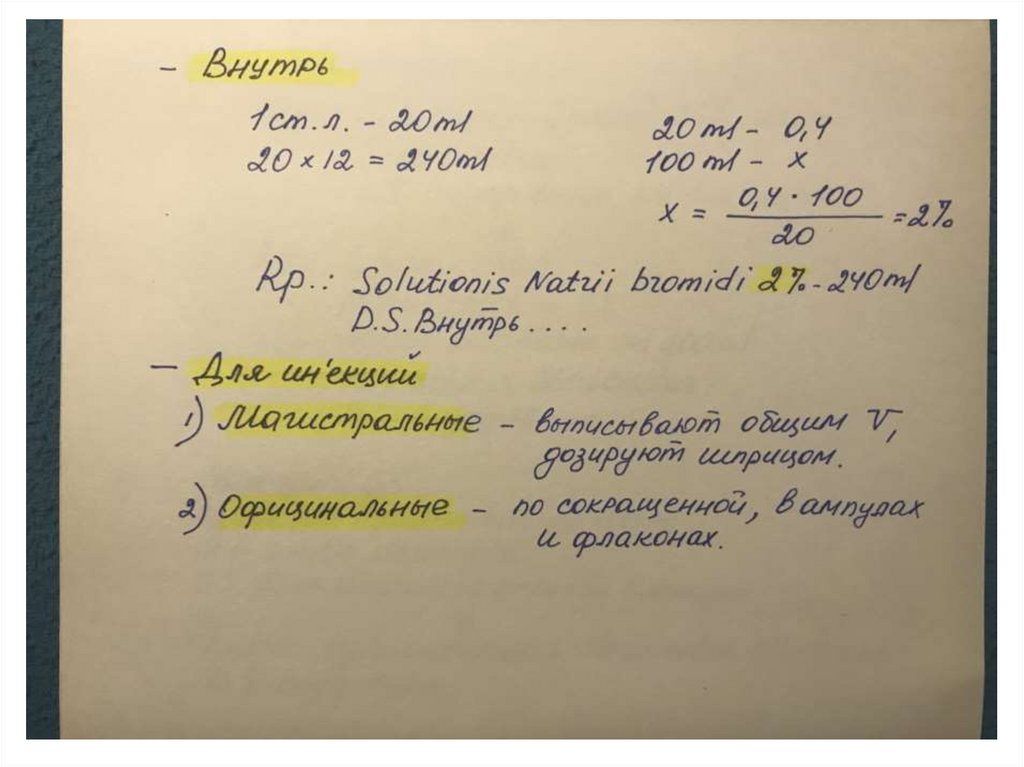 – Внутрь
1 ст. л. – 20 ml
20 × 12 = 240 ml
20 ml – 0,4
100 ml – x
x = 0,4 · 100 / 20 = 2%
Rp.: Solutionis Natrii bromidi 2% – 240 ml
D.S. Внутрь ....
– Для ин'екций
1) Магистральные – выписывают общим V,
дозируют шприцом.
2) Официнальные – по сокращенной, в ампулах
и флаконах.